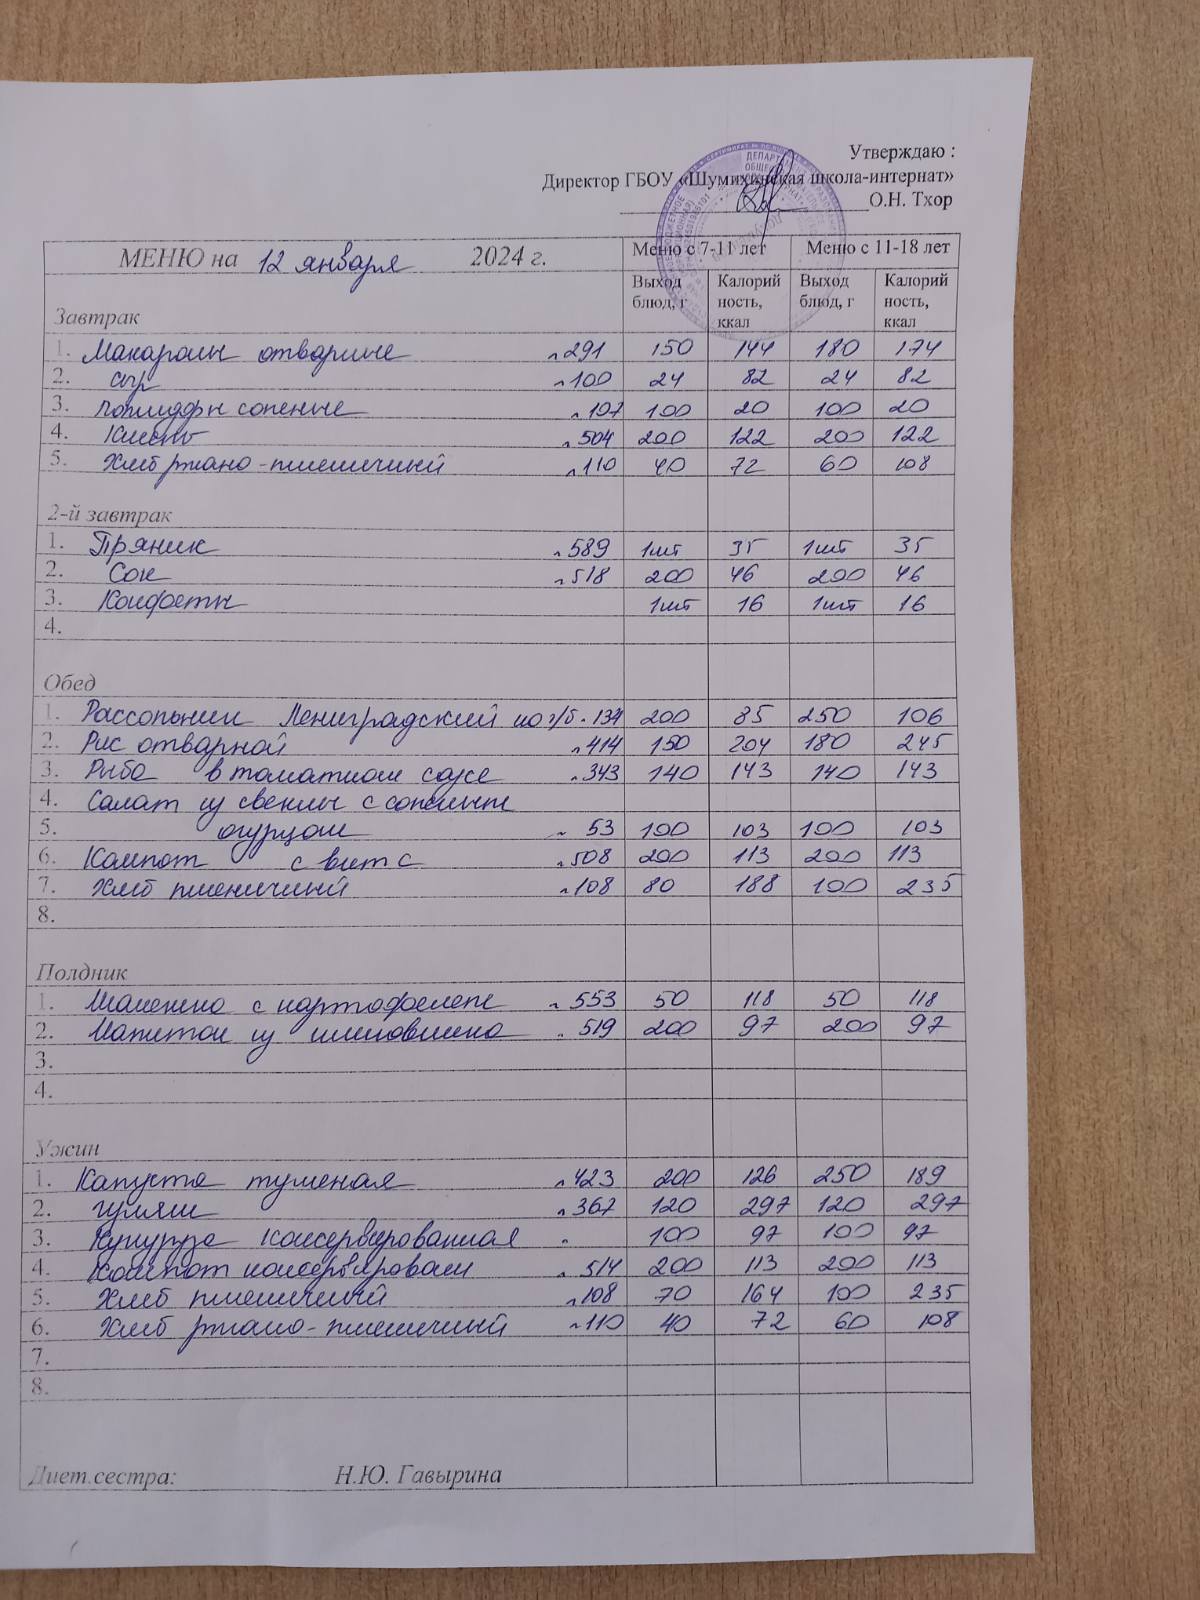 Утверждаю :
Директор ГБОУ «Шумихинская школа-интернат»
О.Н. Тхор
МЕНЮ на 12 января 2024 г. Меню с 7-11 лет Меню с 11-18 лет
Завтрак Выход блюд, г Калорий ность, ккал Выход блюд, г Калорий ность, ккал
1. Макароны отварные л291 150 144 180 174
2. сыр л100 24 82 24 82
3. помидоры соленые л107 100 20 100 20
4. Кисель л504 200 122 200 122
5. Хлеб ржано-пшеничный л110 40 72 60 108
2-й завтрак
1. Пряник л589 1шт 35 1шт 35
2. Сок л518 200 46 200 46
3. Конфеты 1шт 16 1шт 16
4.
Обед
1. Рассольник Ленинградский на г/б. 134 200 85 250 106
2. Рис отварной л414 150 204 180 245
3. Рыба в томатном соусе л343 140 143 140 143
4. Салат из свеклы с соленым
5. огурцом л 53 100 103 100 103
6. Компот с вит с л508 200 113 200 113
7. Хлеб пшеничный л108 80 188 100 235
8.
Полдник
1. с картофелем л 553 50 118 50 118
2. Напиток из шиповника л 519 200 97 200 97
3.
4.
Ужин
1. Капуста тушеная л423 200 126 250 189
2. гуляш л367 120 297 120 297
3. Кукуруза консервированная л 100 97 100 97
4. Компот консервирован л 514 200 113 200 113
5. Хлеб пшеничный л108 70 164 100 235
6. Хлеб ржано-пшеничный л110 40 72 60 108
7.
8.
Диет.сестра: Н.Ю. Гавырина